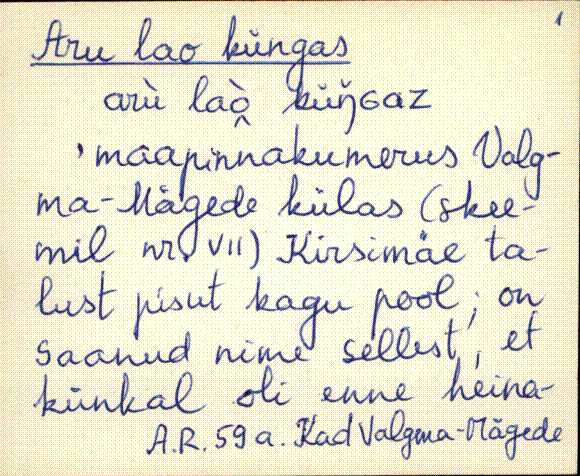 1
Aru lao küngas
arù laò̭ küŋ̆ɢaz
'maapinnakumerus Valg-
ma-Mägede külas (skee-
mil nr. VII) Kirsimäe ta-
lust pisut kagu pool; on
saanud nime sellest, et
künkal oli enne heina-
A.R. 59 a. Kad Valgma-Mägede